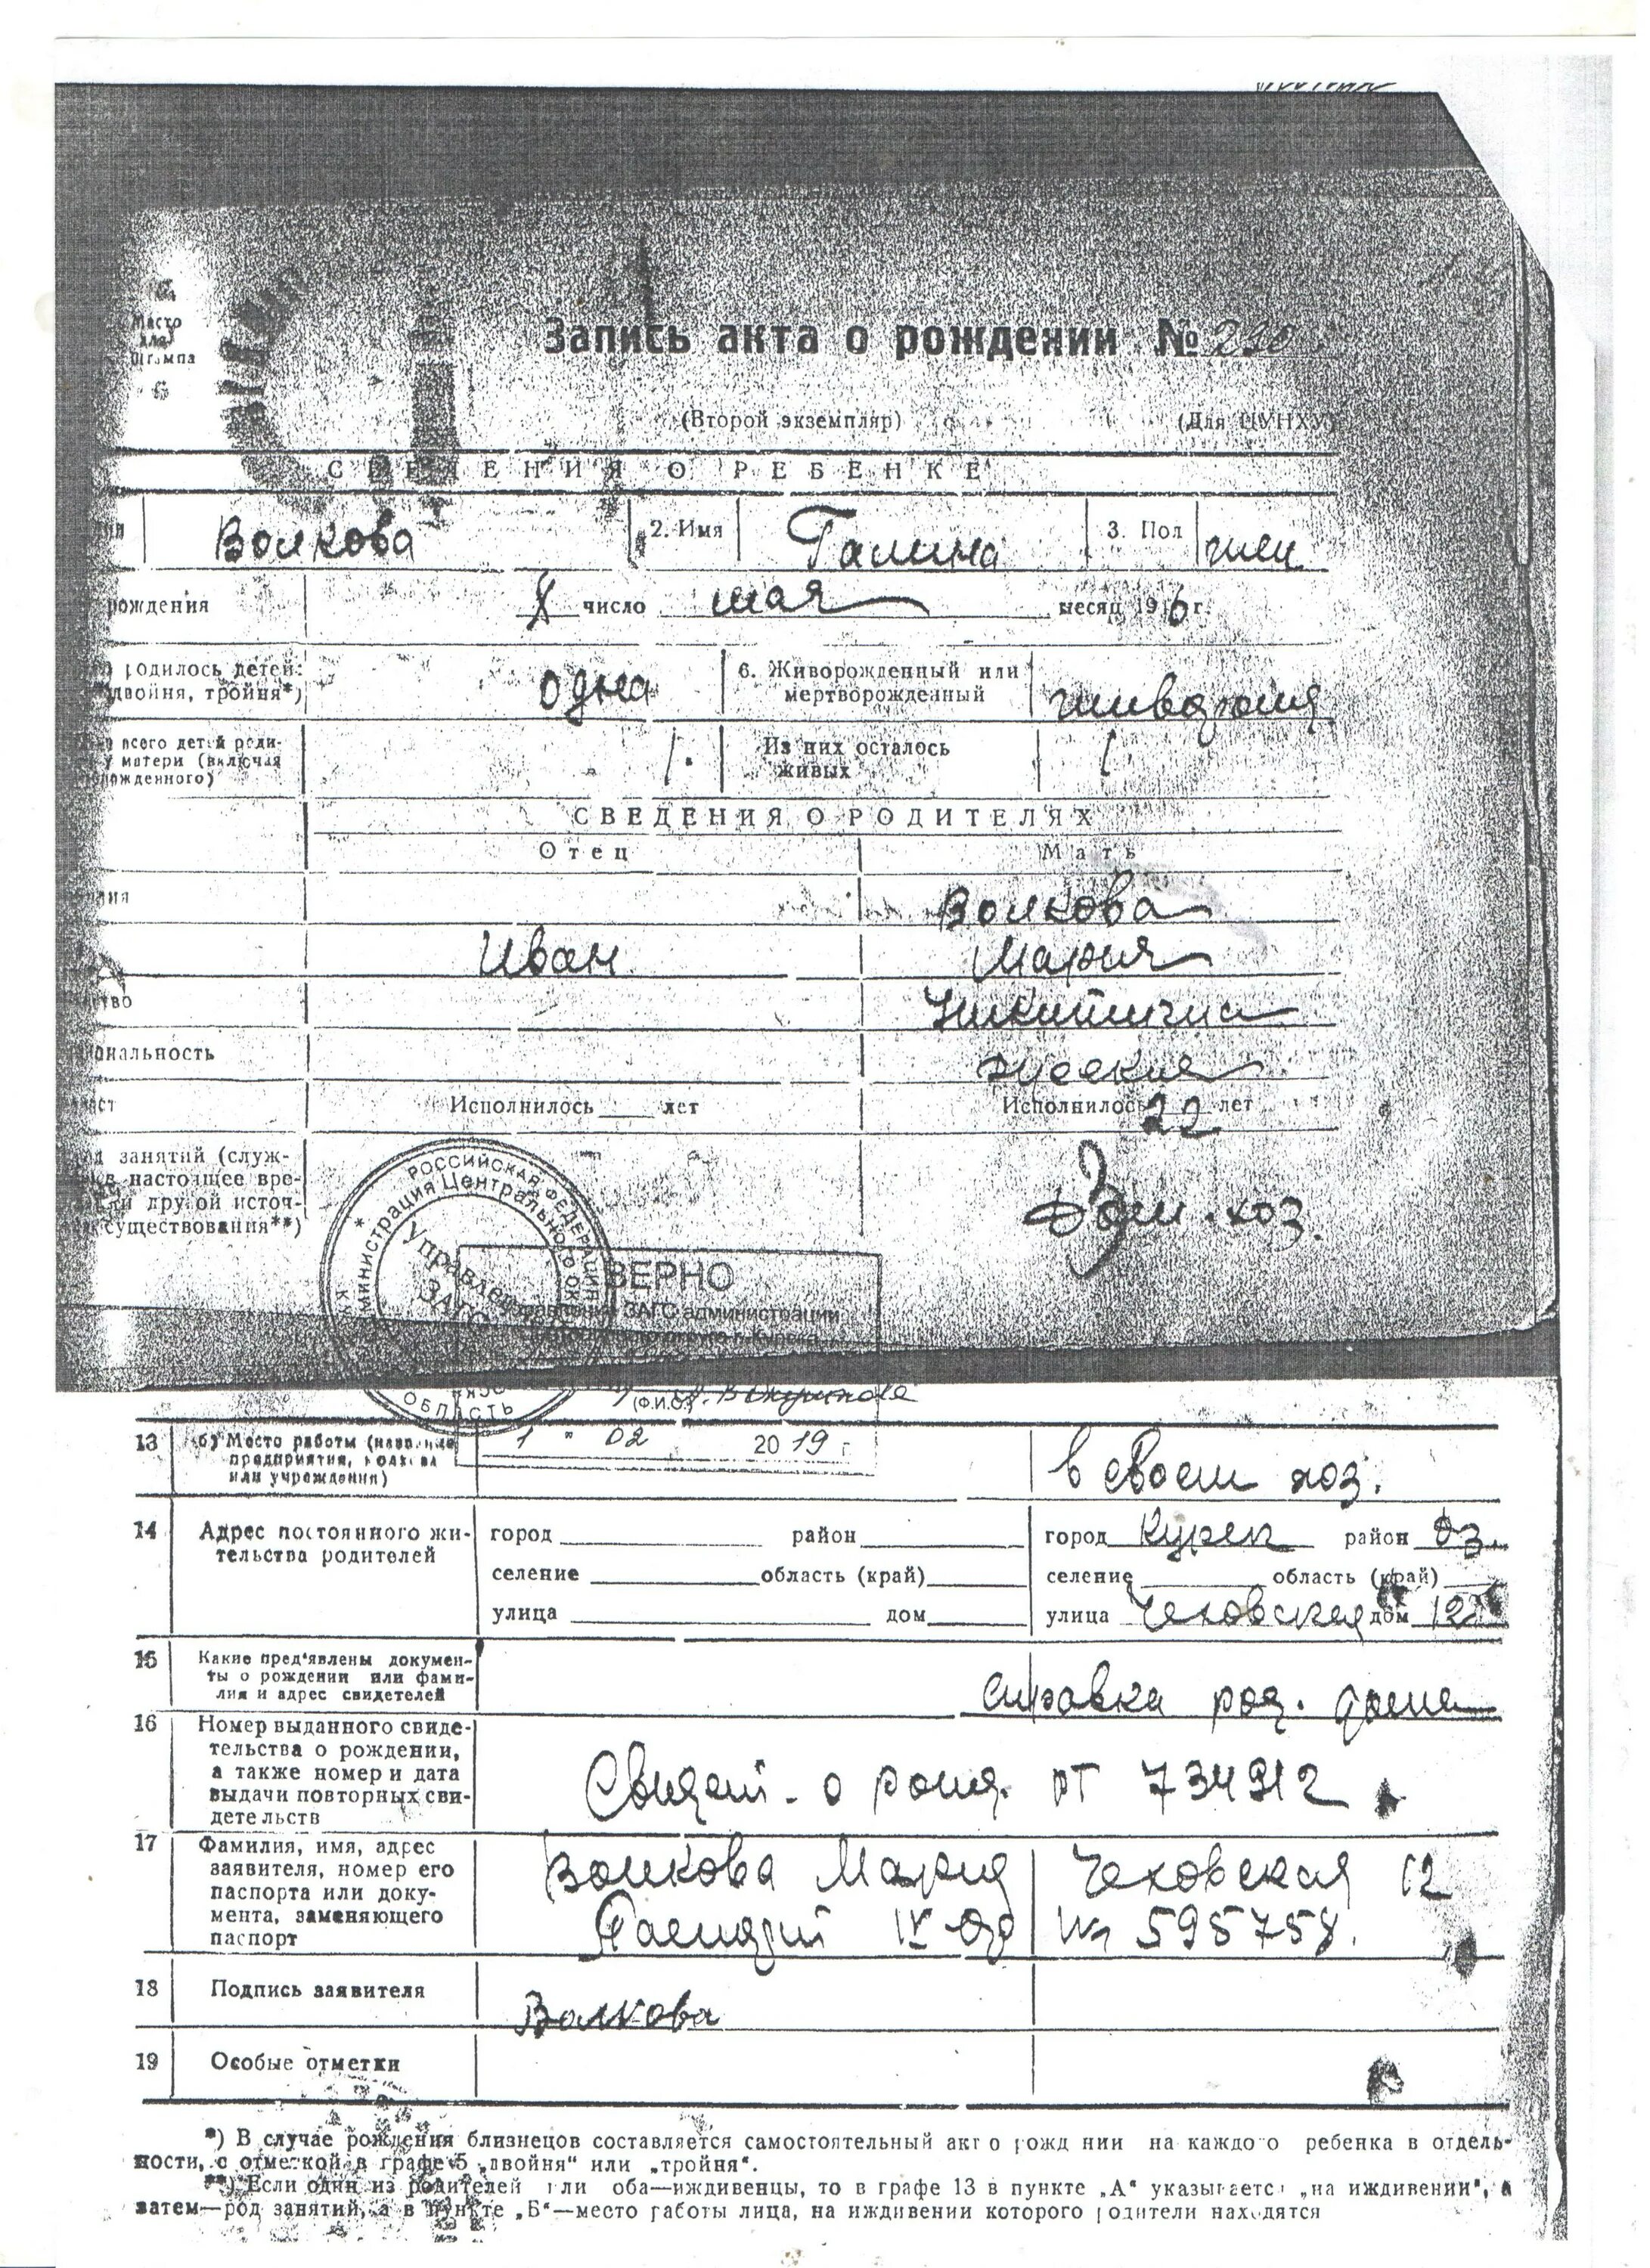 Место
для
штампа
Запись акта о рождении № 290
(Второй экземпляр) (Для ЦУНХУ)
СВЕДЕНИЯ О РЕБЕНКЕ
Волкова 2. Имя Галина 3. Пол жен
рождения 8 число мая месяц 19 6 г.
родилось детей: одна 6. Живорожденный или
двойня, тройня*) мертворожденный
всего детей роди- 1. Из них осталось 1
у матери (включая живых
рожденного)
СВЕДЕНИЯ О РОДИТЕЛЯХ
Отец Мать
Волкова
Иван Мария
Никитична
нальность русская
Исполнилось ____ лет Исполнилось 22 лет
занятий (служ-
в настоящее вре-
ли другой источ-
существования**)
Дом. хоз.
РОССИЙСКАЯ ФЕДЕРАЦИЯ
Администрация Центрального ок
Управлен
ЗАГС
ОБЛАСТЬ
ВЕРНО
Управление ЗАГС администрации
Центрального округа г. Курска
(Ф.И.О.)
1 " 02 2019 г.
13 б) Место работы (название в своем хоз.
предприятия, колхоза
или учреждения)
14 Адрес постоянного жи- город ____ район ____ город Курск район Дз.
тельства родителей селение ____ область (край) ____ селение ____ область (край) ____
улица ____ дом ____ улица Чеховская дом 12
15 Какие пред'явлены докумен-
ты о рождении или фами-
лия и адрес свидетелей справка род. дома
16 Номер выданного свиде-
тельства о рождении,
а также номер и дата Свидет. о рожд. РТ 734912
выдачи повторных сви-
детельств
17 Фамилия, имя, адрес Волкова Мария Чеховская 12
заявителя, номер его
паспорта или доку-
мента, заменяющего № 595758.
паспорт
18 Подпись заявителя Волкова
19 Особые отметки
*) В случае рождения близнецов составляется самостоятельный акт о рождении на каждого ребенка в отдель-
ности, с отметкой в графе 5 „двойня“ или „тройня“.
**) Если один из родителей или оба—иждивенцы, то в графе 13 в пункте „А“ указывается „на иждивении“, а
затем—род занятий, а в пункте „Б“—место работы лица, на иждивении которого родители находятся